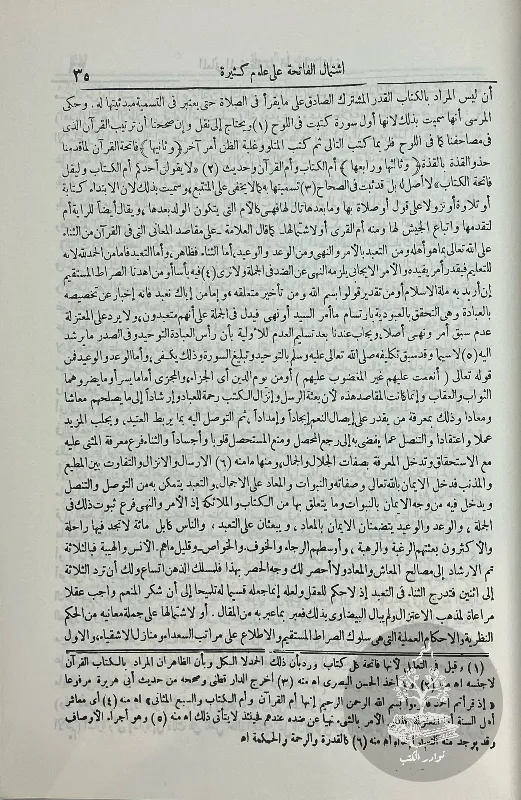 اشتمال الفاتحة على علوم كثيرة
٣٥
أن ليس المراد بالكتاب القدر المشترك الصادق على ما يقرأ فى الصلاة حتى يعتبر فى التسمية مبدئيتها له . وحكى
المرسى أنها سميت بذلك لأنها أول سورة كتبت فى اللوح (١) ويحتاج إلى نقل وإن صححنا أن ترتيب القرآن الذى
فى مصاحفنا كما فى اللوح فلربما كتب التالى ثم كتب المتلو وغلبة الظن أمر آخر ( وثانيها ) فاتحة القرآن لما قدمنا
حذو القذة بالقذة ( وثالثها ورابعها ) أم الكتاب وأم القرآن وحديث (٢) « لا يقولن أحدكم أم الكتاب وليقل
فاتحة الكتاب » لا أصل له بل قد ثبت فى الصحاح (٣) تسميتها به كما لا يخفى على المتتبع، وسميت بذلك لأن الابتداء كتابة
أو تلاوة أو نزولا على قول أو صلاة بها وما بعدها تال لها فهى كالأم التى يتكون الولد بعدها ، ويقال أيضا للراية أم
لتقدمها واتباع الجيش لها ومنه أم القرى أو لاشتمالها. كما قال العلامة .على مقاصد المعانى التى فى القرآن من الثناء
على الله تعالى بما هو أهله ومن التعبد بالأمر والنهى ومن الوعد والوعيد، أما الثناء فظاهر، وأما التعبد فاما من الحمد لله لأنه
للتعليم فيقدر أمر يفيده والأمر الايجابى يلزمه النهى عن الضد فى الجملة ولا نرى (٤) فيه بأسا أو من اهدنا الصراط المستقيم
إن أريد به ملة الاسلام أو من تقدير قولوا بسم الله ومن تأخير متعلقه ،وإما من إياك نعبد فانه إخبار عن تخصيصه
بالعبادة وهى التحقق بالعبودية بارتسام ما أمر السيد أو نهى فيدل فى الجملة على أنهم متعبدون ، ولا يرد على المعتزلة
عدم سبق أمر ونهى أصلا، ويجاب عندنا بعد تسليم العدم للأولية بأن رأس العبادة التوحيد وفى الصدر ما يرشد
اليه (٥) لا سيما وقد سبق تكليفه صلى الله تعالى عليه وسلم بالتوحيد وتبليغ السورة وذلك يكفى ،وأما الوعد والوعيد فمن
قوله تعالى ( أنعمت عليهم غير المغضوب عليهم ) أو من يوم الدين أى الجزاء، والمجزى أما ما يسر أو ما يضر وهما
الثواب والعقاب وإنما كانت المقاصد هذه لأن بعثة الرسل وإنزال الكتب رحمة للعباد وإرشاداً إلى ما يصلحهم معاشا
ومعادا وذلك بمعرفة من يقدر على إيصال النعم إيجاداً وإمداداً ، ثم التوصل اليه بما يربط العتيد، ويجلب المزيد
عملا واعتقادا والتنصل عما يفضى به إلى رجع المحصل ومنع المستحصل قلوبا وأجساداً والثناء فرع معرفة المثنى عليه
مع الاستحقاق وتدخل المعرفة بصفات الجلال والجمال، ومنها ما منه (٦) الارسال والانزال والتفاوت بين المطيع
والمذنب فدخل الايمان بالله تعالى وصفاته والنبوات والمعاد على الاجمال، والتعبد يتمكن به من التوصل والتنصل
ويدخل فيه من وجه الايمان بالنبوات وما يتعلق بها من الكتاب والملائكة إذ الأمر والنهى فرع ثبوت ذلك فى
الجملة ، والوعد والوعيد يتضمنان الايمان بالمعاد ، ويبعثان على التعبد ، والناس كابل مائة لا تجد فيها راحلة
والأكثرون بعثتهم الرغبة والرهبة ، وأوسطهم الرجاء والخوف. والخواص ـ وقليل ما هم ـ الأنس والهيبة فبالثلاثة
تم الارشاد إلى مصالح المعاش والمعاد ولا أحصر لك وجه الحصر بهذا فلمسلك الذهن اتساع ولك أن ترد الثلاثة
إلى اثنين فتدرج الثناء فى التعبد إذ لا حكم للعقل ولعله إنما جعله قسيما له تلميحا إلى أن شكر المنعم واجب عقلا
مراعاة لمذهب الاعتزال ولم يبال البيضاوى بذلك فعبر بما عبر به من المقال . أو لاشتمالها على جملة معانيه من الحكم
النظرية والاحكام العملية التى هى سلوك الصراط المستقيم والاطلاع على مراتب السعداء ومنازل الاشقياء، والأول
(١) وقيل فى التعليل لأنها فاتحة كل كتاب ورد بأن ذلك الحمد لا الكل وبأن الظاهر أن المراد بالكتاب القرآن
لا جنسه اه منه (٢) أخذ الحسن البصرى اه منه (٣) أخرج الدار قطنى وصححه من حديث أبى هريرة مرفوعا
« إذا قرأتم الحمد بسم الله الرحمن الرحيم إنها أم القرآن وأم الكتاب والسبع المثانى » اه منه (٤) أى معاشر
أهل السنة الأمر بالشىء نهيا عن ضده عندهم فحينئذ لا يتأتى ذلك اه منه (٥) وهو أجراء الأوصاف
وقد يوجد منه اه منه (٦) كالقدرة والرحمة والحكمة اه
نوادر الكتب